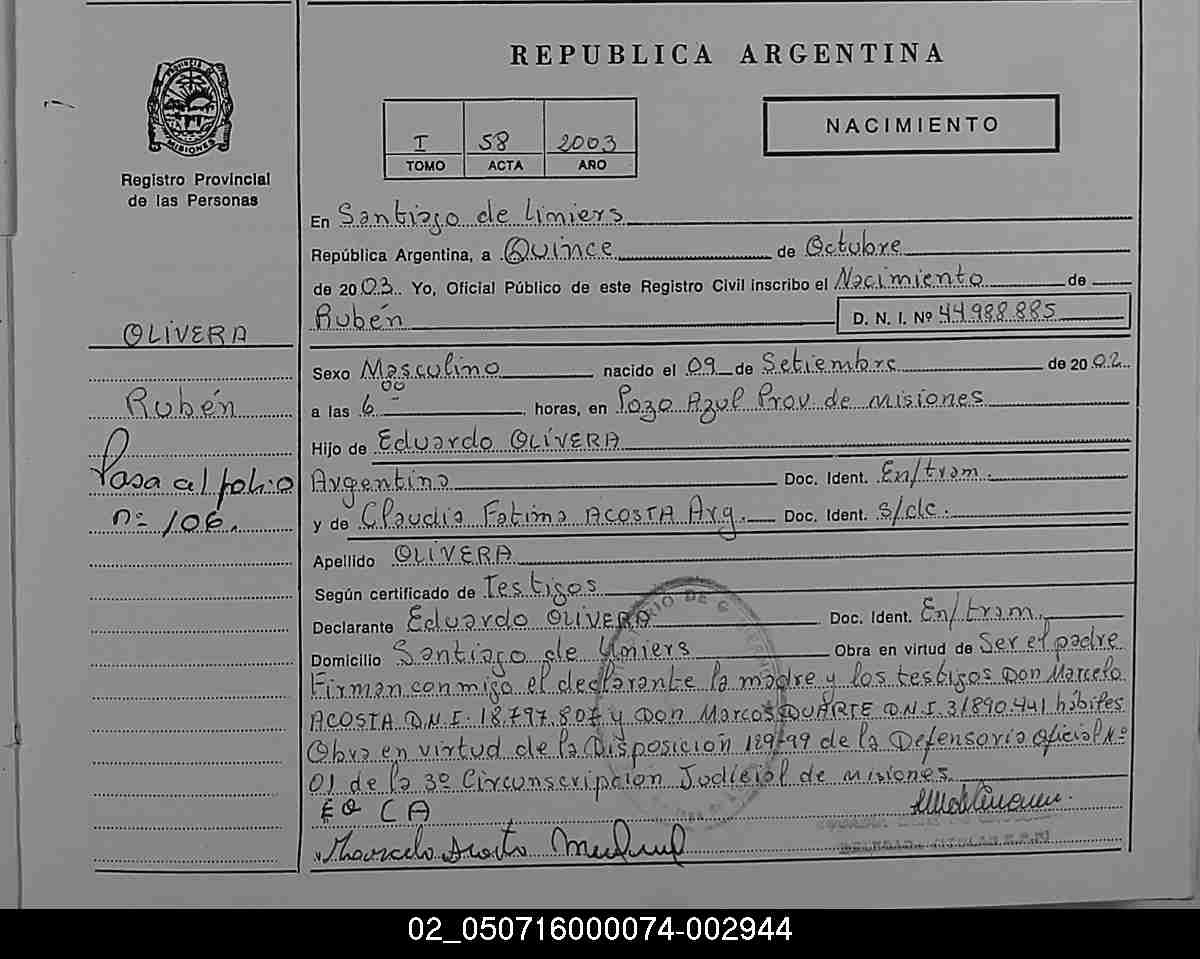 REPUBLICA ARGENTINA
PROVINCIA DE MISIONES
Registro Provincial
de las Personas
I 58 2003
TOMO ACTA AÑO
NACIMIENTO
En Santiago de Liniers
República Argentina, a Quince de Octubre
de 2003. Yo, Oficial Público de este Registro Civil inscribo el Nacimiento de
Rubén D. N. I. Nº 44.988.885
OLIVERA
Sexo Masculino nacido el 09 de Setiembre de 2002.
Rubén
a las 6 00 horas, en Pozo Azul Prov. de Misiones
Hijo de Eduardo OLIVERA
Pasa al folio
nº 106.
Argentino Doc. Ident. En/tram.
y de Claudia Fatima ACOSTA Arg. Doc. Ident. s/dc.
Apellido OLIVERA
Según certificado de Testigos
Declarante Eduardo OLIVERA Doc. Ident. En/tram.
Domicilio Santiago de Liniers Obra en virtud de Ser el padre
Firman conmigo el declarante la madre y los testigos Don Marcelo
ACOSTA D.N.I. 18.797.807 y Don Marcos DUARTE D.N.I. 31.890.441 hábiles
Obra en virtud de la Disposición 189-99 de la Defensoria Oficial Nº
01 de la 3º Circunscripción Judicial de Misiones.
E O C A
Marcelo Acosta
02_050716000074-002944